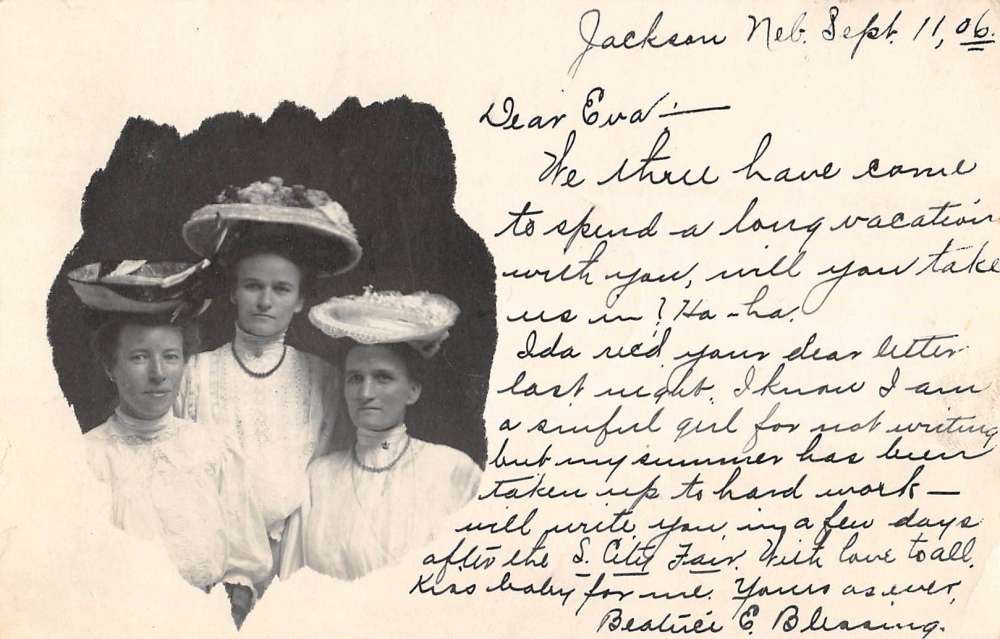 Jackson Neb. Sept. 11, 06.
Dear Eva:—
We three have come
to spend a long vacation
with you, will you take
us in? Ha-ha.
Ida rec'd your dear letter
last night. I know I am
a sinful girl for not writing
but my summer has been
taken up to hard work—
will write you in a few days
after the S. City Fair. With love to all.
Kiss baby for me. Yours as ever,
Beatrice E. Blessing.